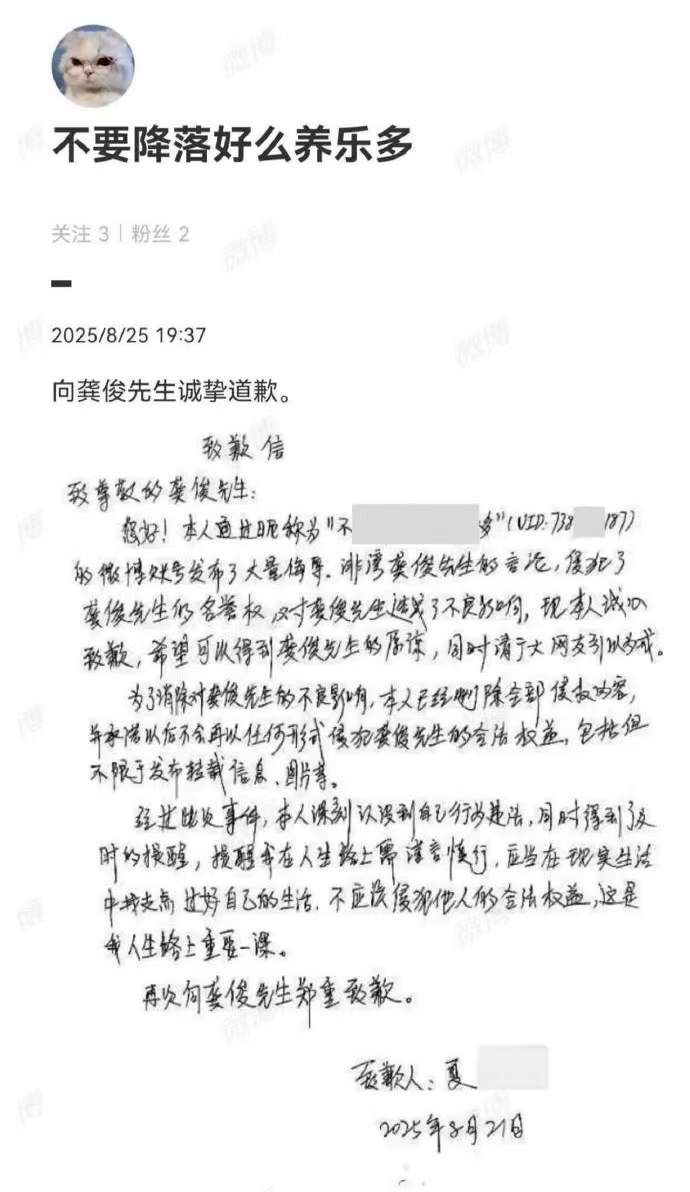 不要降落好么养乐多
关注 3 | 粉丝 2
2025/8/25 19:37
向龚俊先生诚挚道歉。
致歉信
致尊敬的龚俊先生:
您好!本人通过昵称为"不 多"(UID:738 187)
的微博账号发布了大量侮辱、诽谤龚俊先生的言论,侵犯了
龚俊先生的名誉权,对龚俊先生造成了不良影响,现本人诚心
致歉,希望可以得到龚俊先生的原谅,同时请广大网友引以为戒。
为了消除对龚俊先生的不良影响,本人已经删除全部侵权内容,
并承诺以后不会再以任何形式侵犯龚俊先生的合法权益,包括但
不限于发布转载信息、图片等。
经过此次事件,本人深刻认识到自己行为违法,同时得到了及
时的提醒,提醒我在人生路上需谨言慎行,应当在现实生活
中找支点过好自己的生活,不应该侵犯他人的合法权益,这是
我人生路上重要一课。
再次向龚俊先生郑重致歉。
致歉人:夏
2025年8月21日
微博